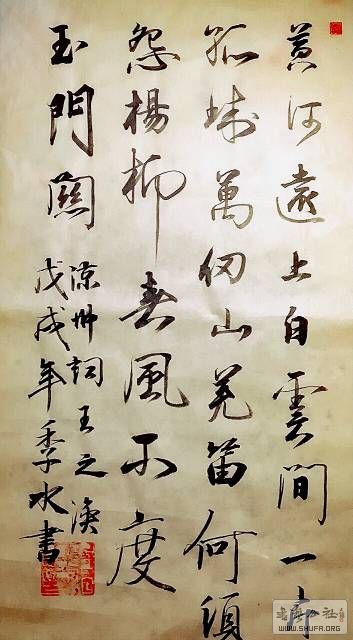 黄河遠上白雲間一片
孤城萬仞山羌笛何須
怨楊柳春風不度
玉門關
涼州詞王之渙
戊戌年季水書
WWW.SHUFA.ORG